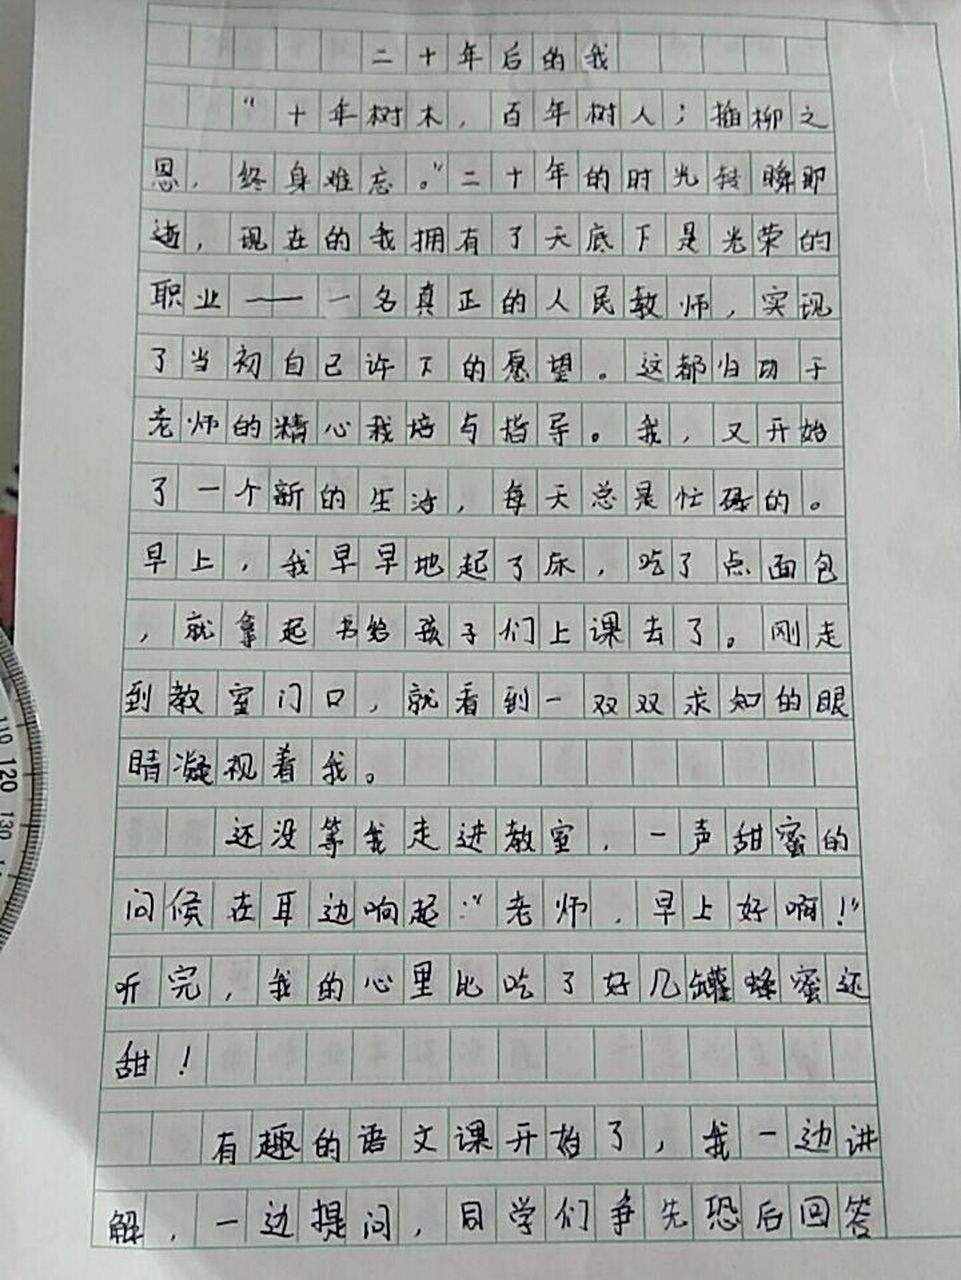 二十年后的我
“十年树木，百年树人；插柳之
恩，终身难忘。”二十年的时光转瞬即
逝，现在的我拥有了天底下是光荣的
职业——一名真正的人民教师，实现
了当初自己许下的愿望。这都归功于
老师的精心栽培与指导。我，又开始
了一个新的生活，每天总是忙碌的。
早上，我早早地起了床，吃了点面包
，就拿起书给孩子们上课去了。刚走
到教室门口，就看到一双双求知的眼
睛凝视着我。
还没等我走进教室，一声甜蜜的
问候在耳边响起：“老师，早上好啊！”
听完，我的心里比吃了好几罐蜂蜜还
甜！
有趣的语文课开始了，我一边讲
解，一边提问，同学们争先恐后回答
110
120
130